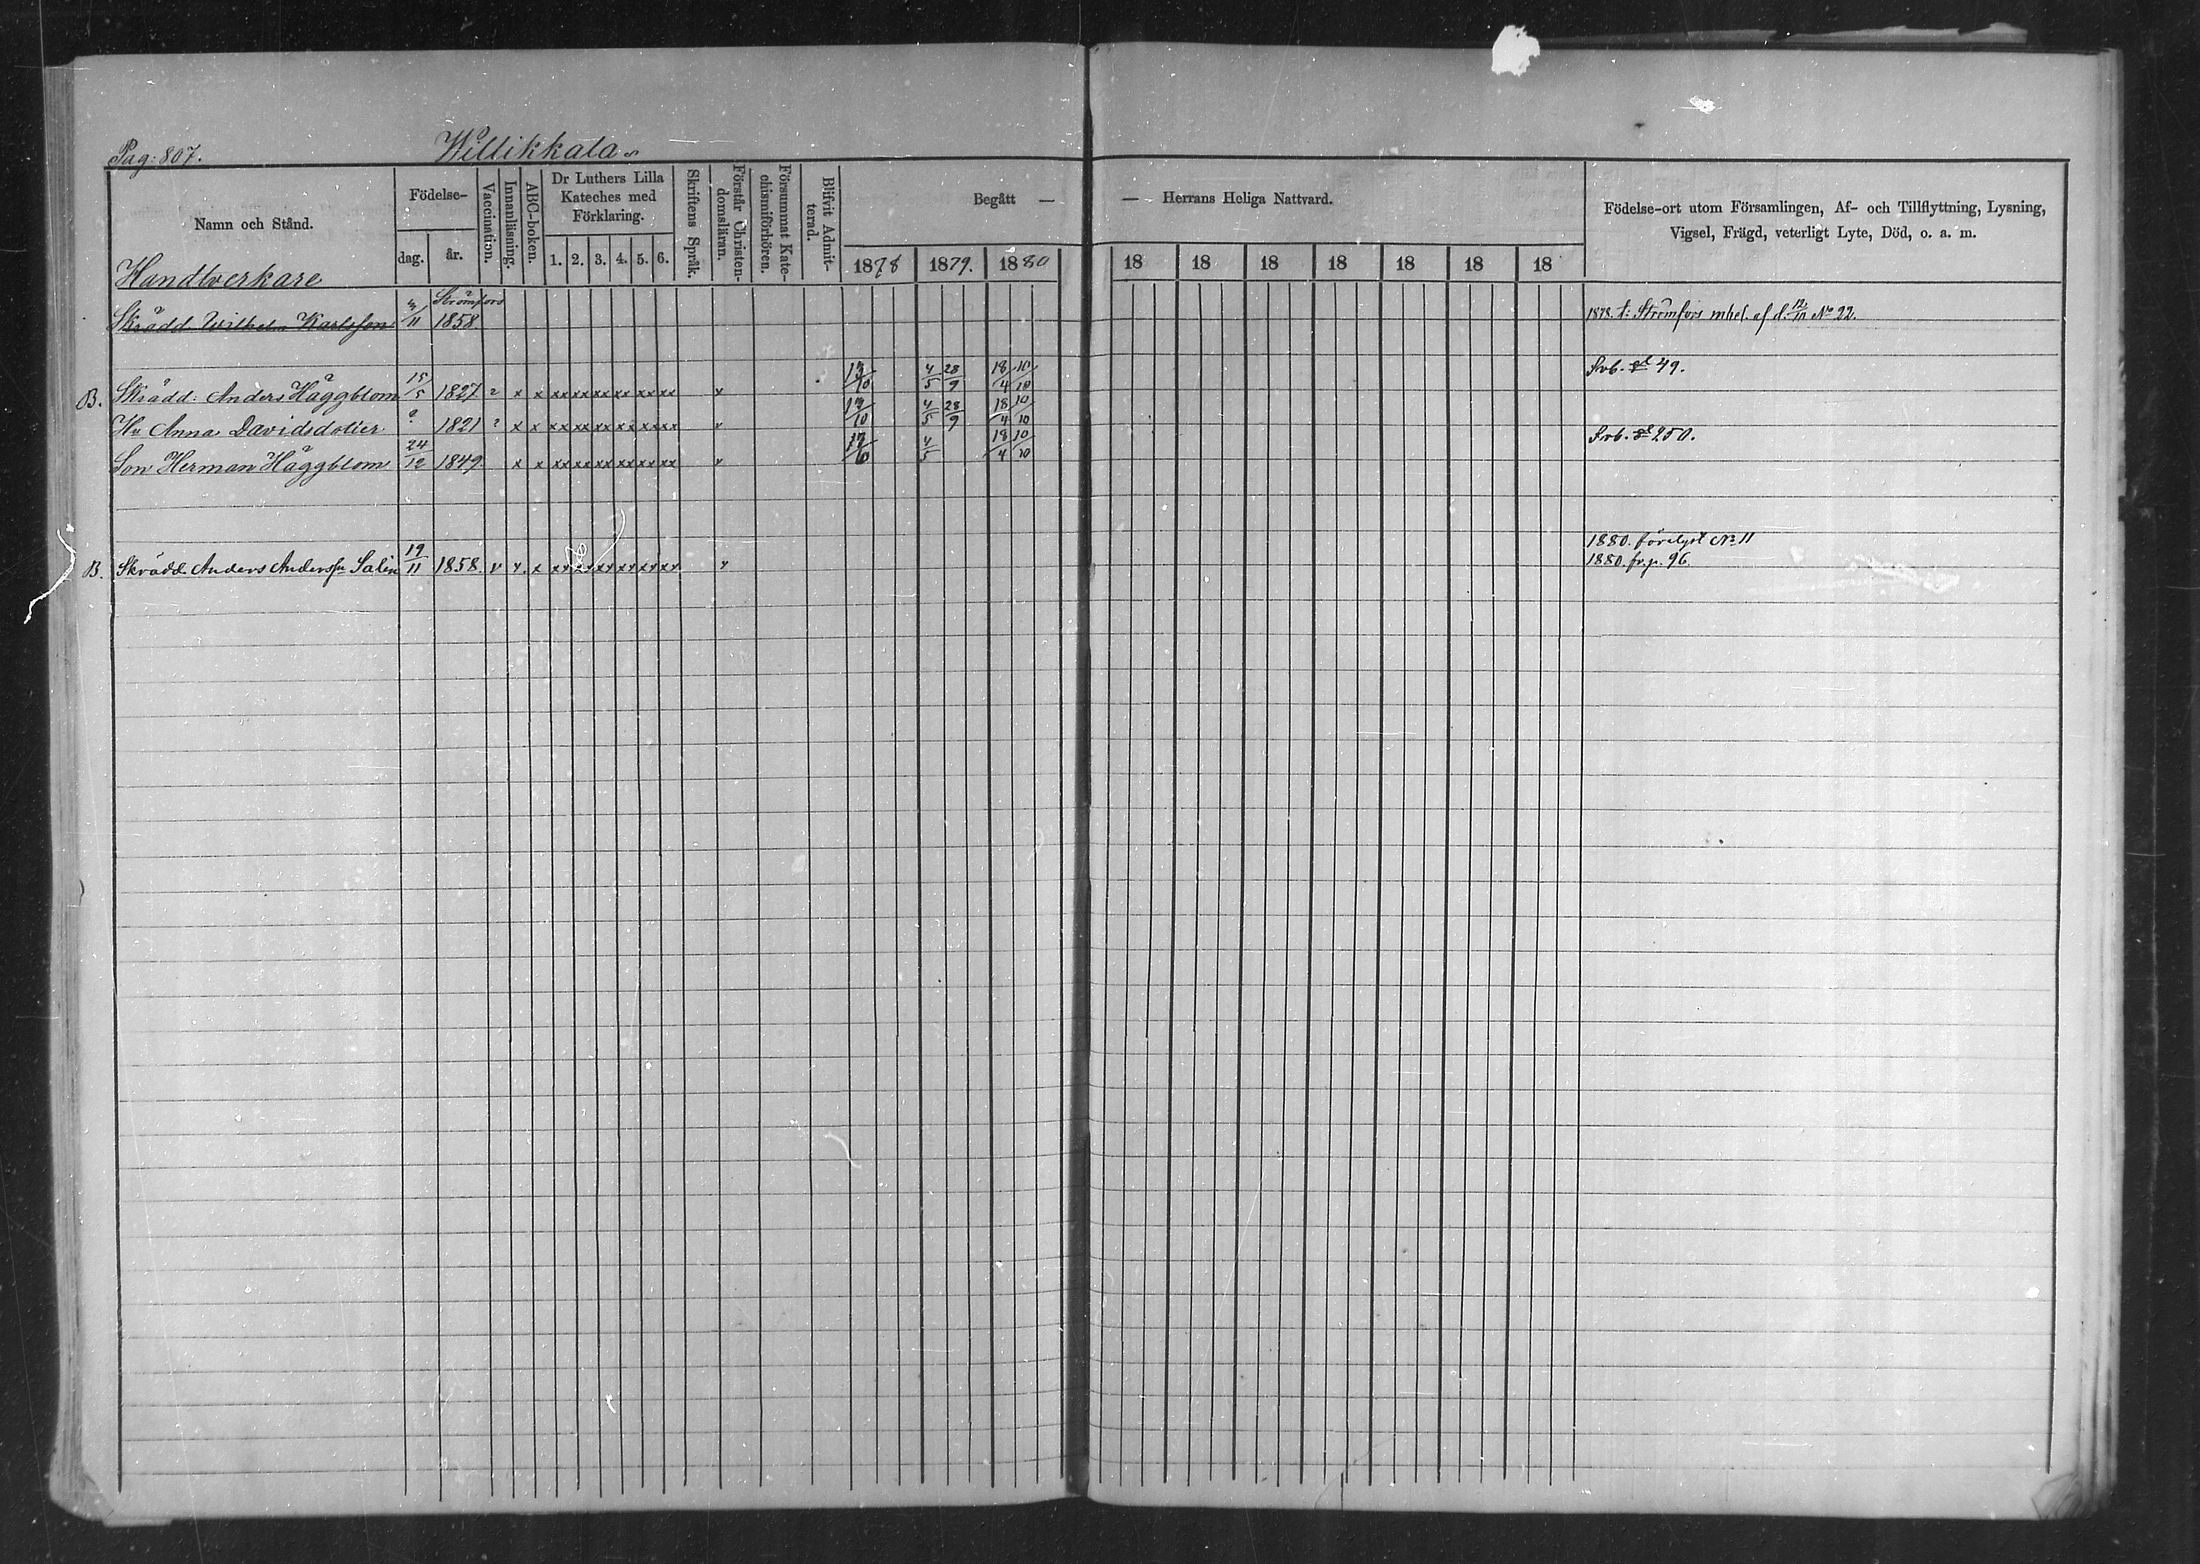 Pag: 807. Willikkala
Namn och Stånd. Födelse- dag. år. Vaccination. Innanläsning. ABC-boken. Dr Luthers Lilla Kateches med Förklaring. 1. 2. 3. 4. 5. 6. Skriftens Språk. Förstår Christendomsläran. Försummat Katechismiförhören. Blifvit Admitterad. Begått — — Herrans Heliga Nattvard. Födelse-ort utom Församlingen, Af- och Tillflyttning, Lysning,
Vigsel, Frägd, veterligt Lyte, Död, o. a. m.
1878 1879. 1880 18 18 18 18 18 18 18
Handtverkare
Strömfors
Skrädd. Wilhelm Karlsson 3/11 1858. 1878. t: Strömfors mbet. af d. No 22.
Frb. 49.
B. Skrädd: Anders Häggblom 15/5 1827 v x x xx xx xx xx xx xx v 13/10 4/5 28/9 18/4 10/10
Hu Anna Davidsdotter ? 1821 ? x x xx xx xx xx xx xx v 13/10 4/5 28/9 18/4 10/10
Frb. 250.
Son Herman Häggblom 24/12 1849. x x xx xx xx xx xx xx v 4/5 18/4 10/10
1880. förelyst No 11
B. Skrädd Anders Andersson Salin 19/11 1858. v v. x xx xx xx xx xx xx v 1880. fr. p. 96.